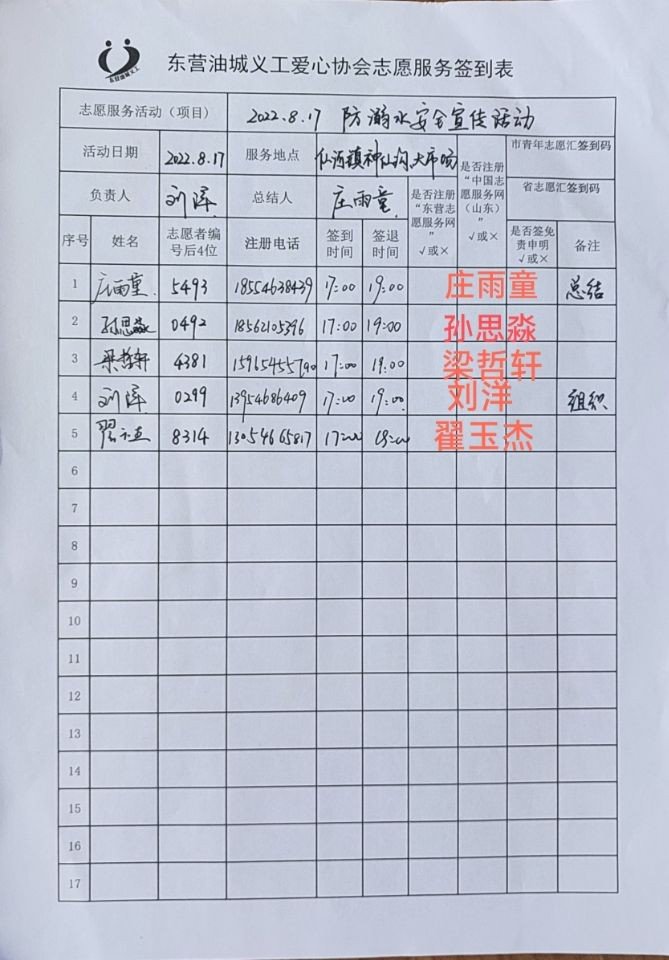 东营油城义工
东营油城义工爱心协会志愿服务签到表
志愿服务活动（项目） 2022.8.17 防溺水安全宣传活动
活动日期 2022.8.17 服务地点 仙河镇神仙沟大市场 是否注册“中国志愿服务网（山东）”√或× 市青年志愿汇签到码
负责人 刘洋 总结人 庄雨童 是否注册“东营志愿服务网”√或× 省志愿汇签到码
序号 姓名 志愿者编号后4位 注册电话 签到时间 签退时间 是否签免责申明√或× 备注
1 庄雨童 5493 18554638439 17:00 19:00 庄雨童 总结
2 孙思淼 0492 18562105396 17:00 19:00 孙思淼
3 梁哲轩 4381 15965455790 17:00 19:00 梁哲轩
4 刘洋 0299 13954686409 17:00 19:00 刘洋 组织
5 翟玉杰 8314 13054665817 17:00 19:00 翟玉杰
6
7
8
9
10
11
12
13
14
15
16
17